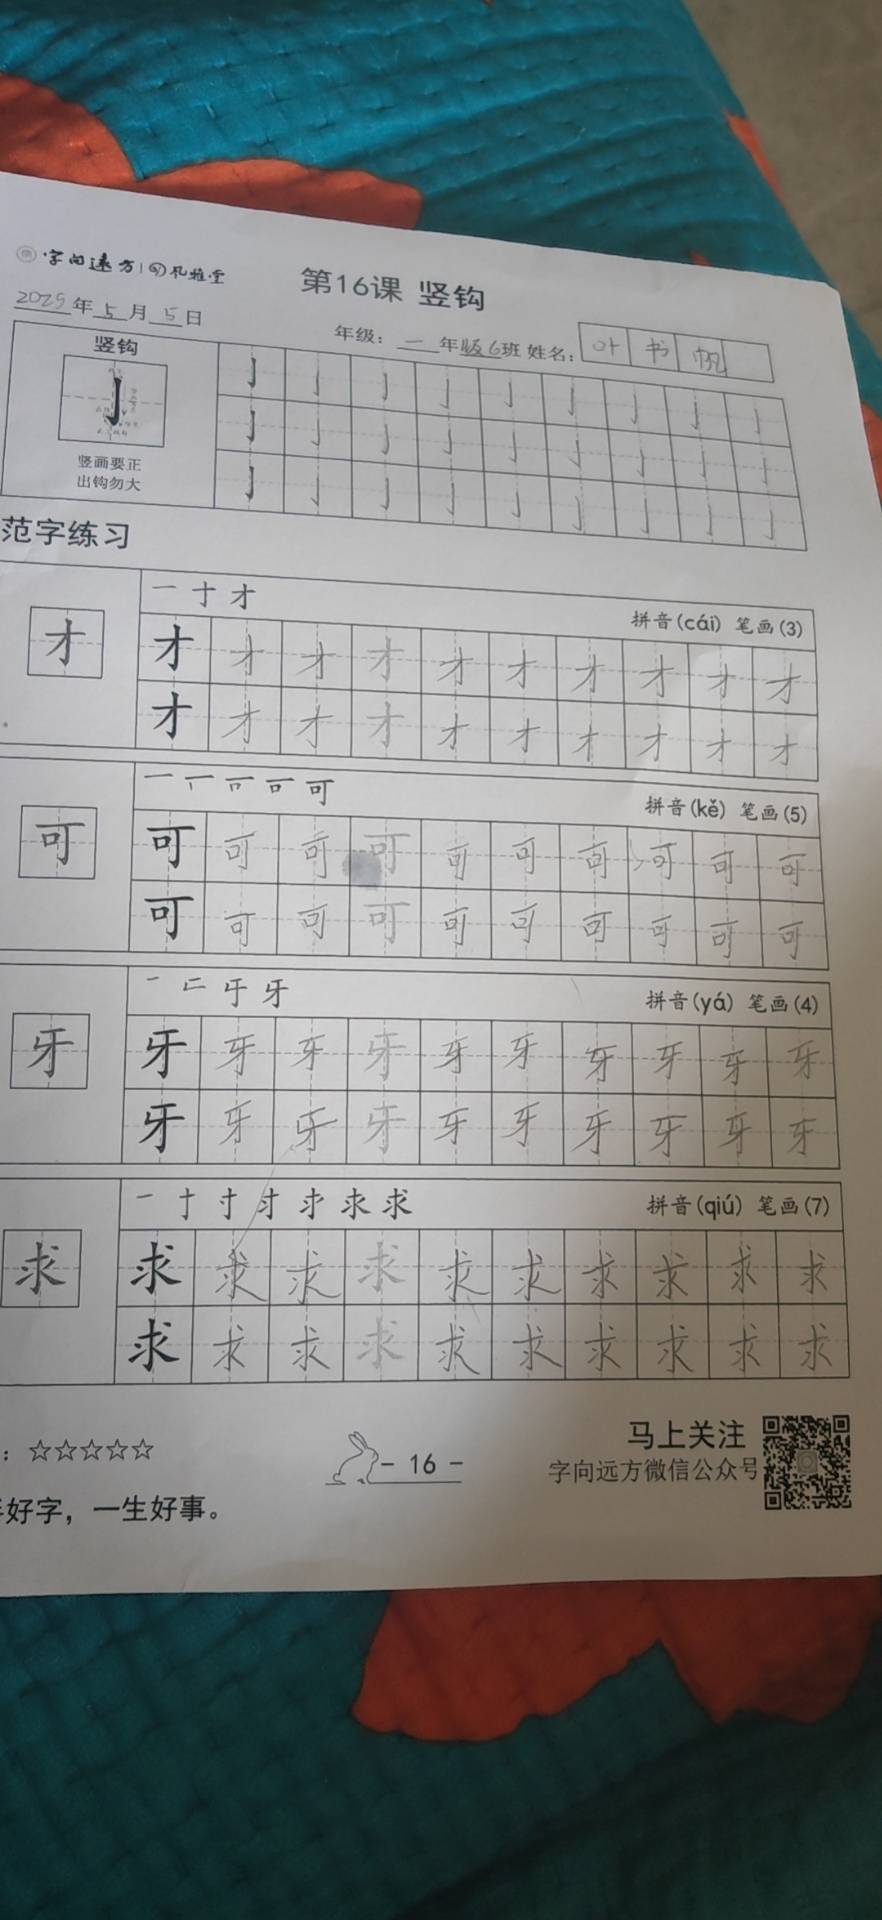 字向远方
第16课 竖钩
2025年5月5日
年级：一年级6班 姓名：叶书帆
竖钩
亅亅亅亅亅亅亅亅亅
亅亅亅亅亅亅亅亅亅
竖画要正
出钩勿大
亅亅亅亅亅亅亅亅亅
范字练习
一十才
拼音(cái) 笔画(3)
才 才才才才才才才才才才
才才才才才才才才才才
拼音(kě) 笔画(5)
可 可可可可可可可可可可
可可可可可可可可可可
拼音(yá) 笔画(4)
牙 牙牙牙牙牙牙牙牙牙牙
牙牙牙牙牙牙牙牙牙牙
拼音(qiú) 笔画(7)
求 求求求求求求求求求求
求求求求求求求求求求
：☆☆☆☆☆
- 16 -
马上关注
字向远方微信公众号
好字，一生好事。